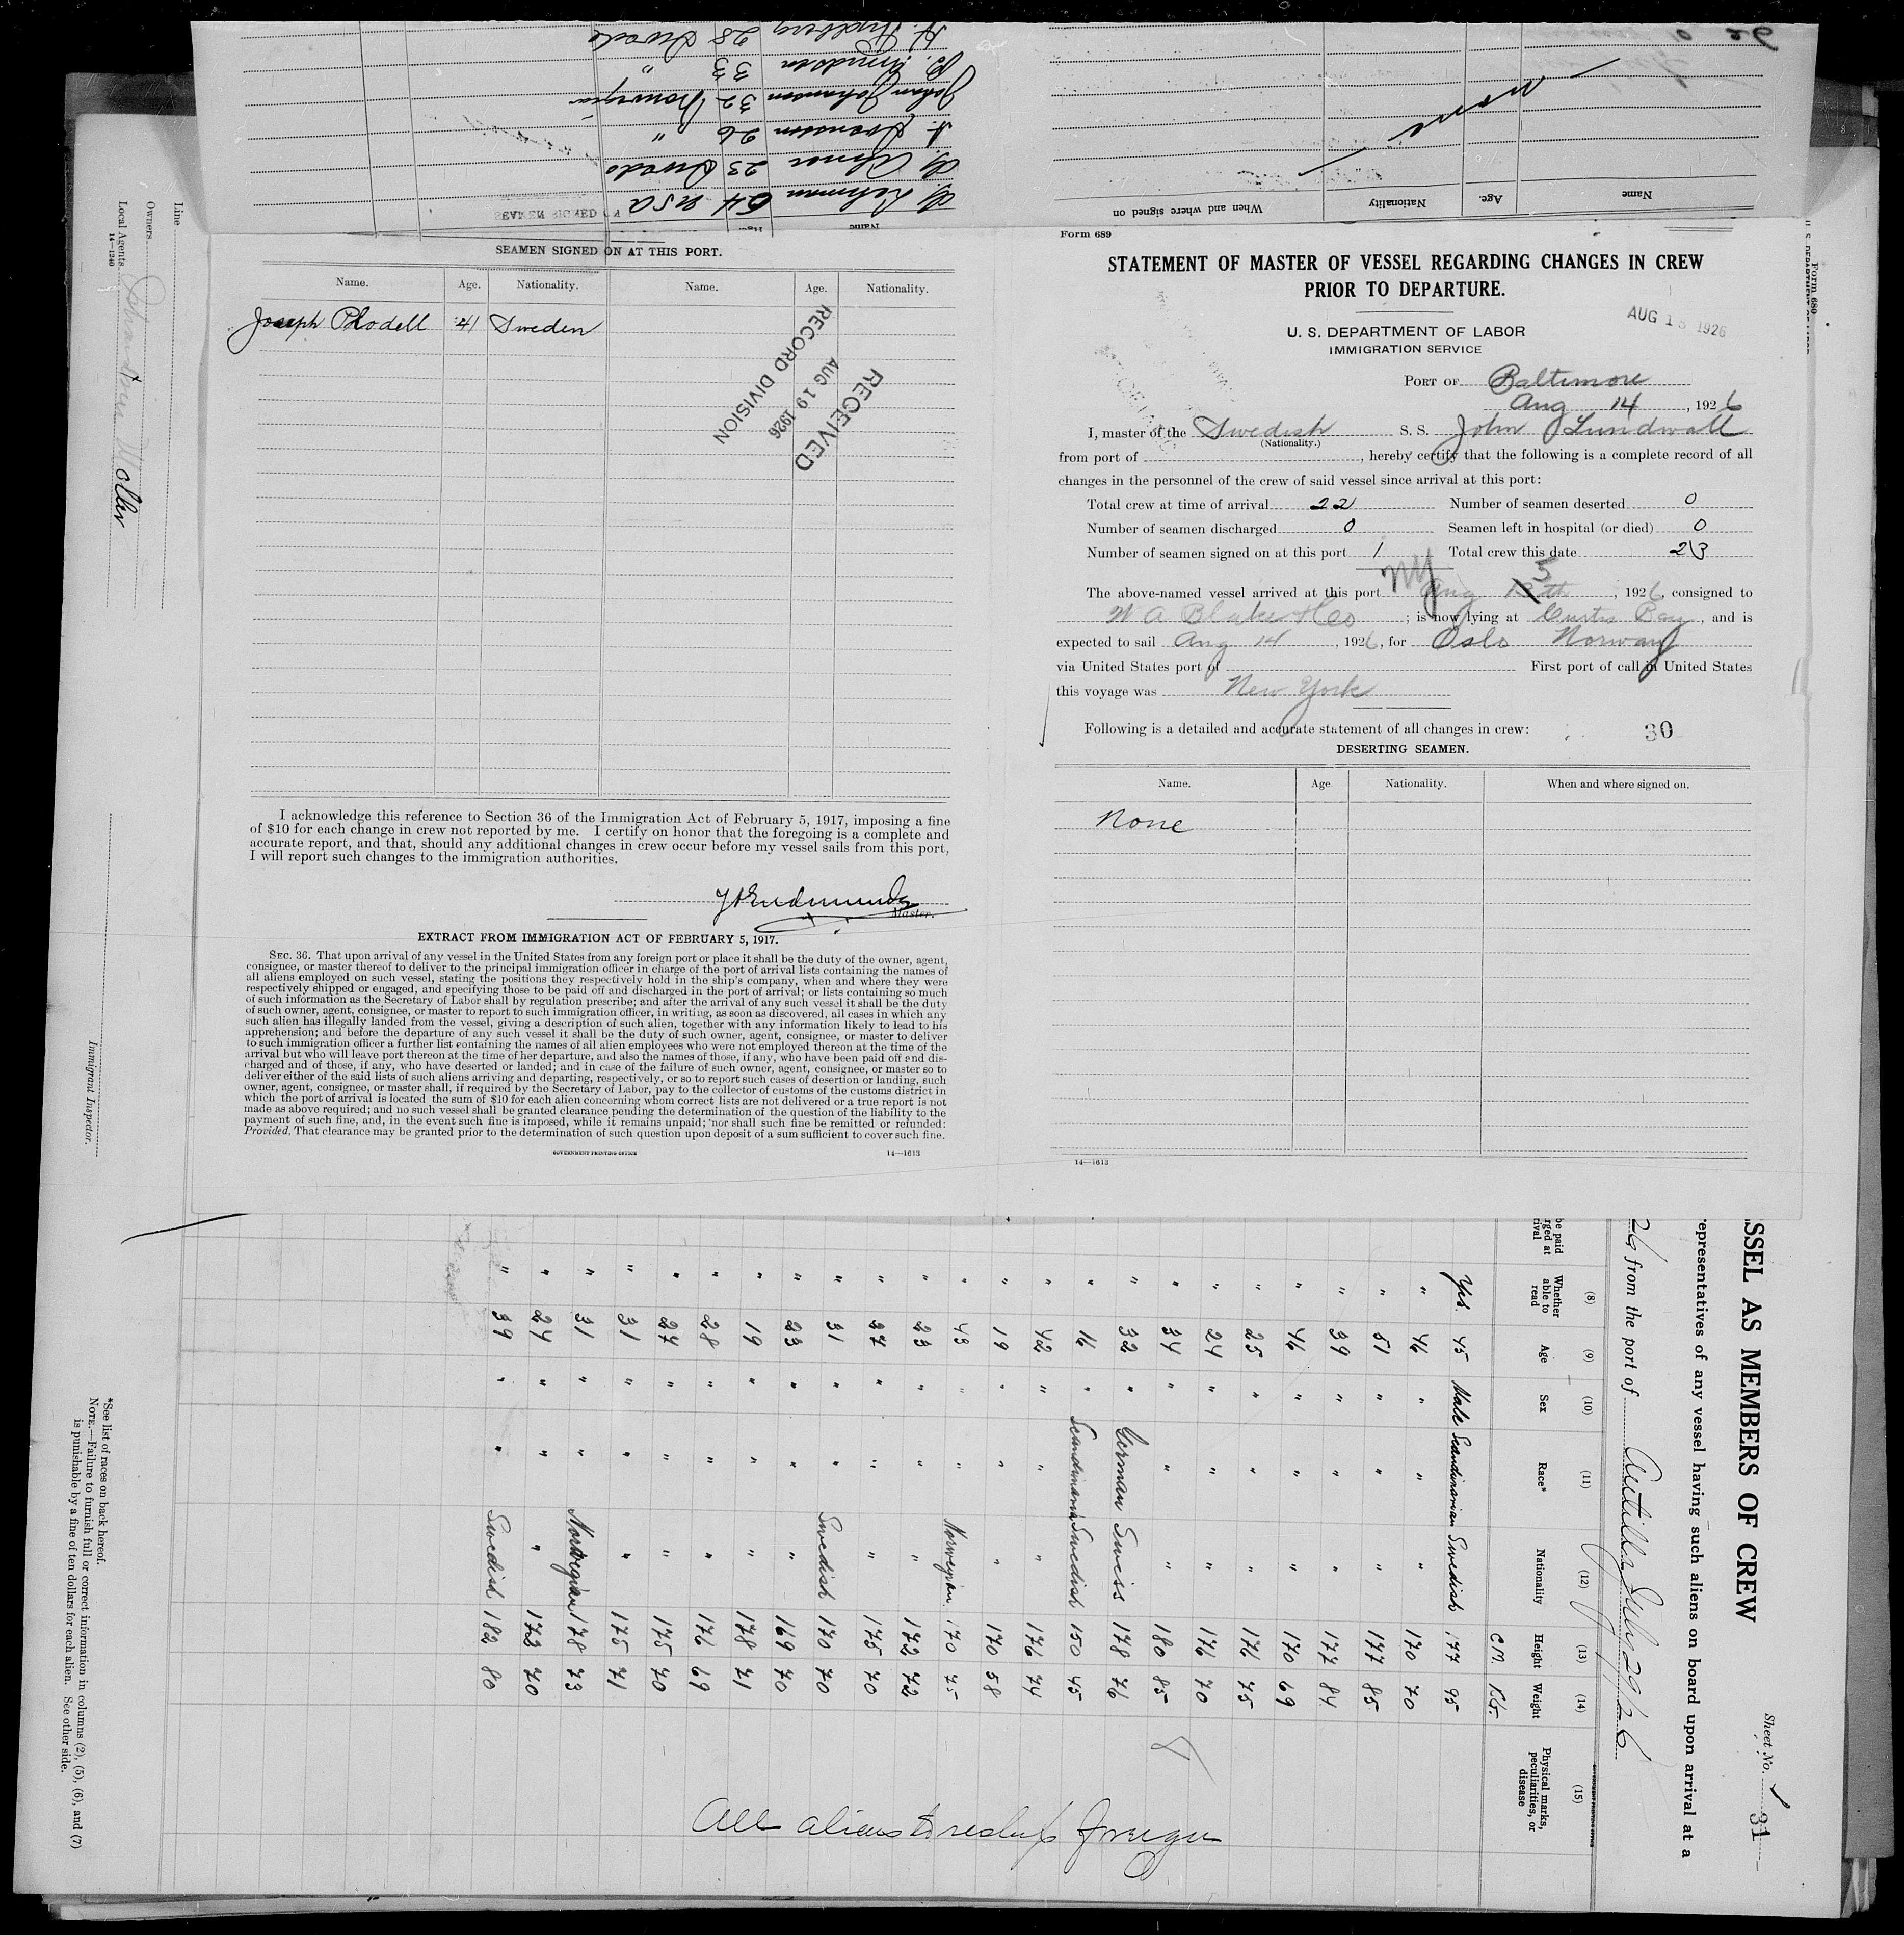 SEAMEN SIGNED ON AT THIS PORT.
Name. Age. Nationality. Name. Age. Nationality.
Joseph 41 Sweden
RECEIVED
AUG 19 1926
RECORD DIVISION
I acknowledge this reference to Section 36 of the Immigration Act of February 5, 1917, imposing a fine
of $10 for each change in crew not reported by me. I certify on honor that the foregoing is a complete and
accurate report, and that, should any additional changes in crew occur before my vessel sails from this port,
I will report such changes to the immigration authorities.
Master.
EXTRACT FROM IMMIGRATION ACT OF FEBRUARY 5, 1917.
SEC. 36. That upon arrival of any vessel in the United States from any foreign port or place it shall be the duty of the owner, agent,
consignee, or master thereof to deliver to the principal immigration officer in charge of the port of arrival lists containing the names of
all aliens employed on such vessel, stating the positions they respectively hold in the ship's company, when and where they were
respectively shipped or engaged, and specifying those to be paid off and discharged in the port of arrival; or lists containing so much
of such information as the Secretary of Labor shall by regulation prescribe; and after the arrival of any such vessel it shall be the duty
of such owner, agent, consignee, or master to report to such immigration officer, in writing, as soon as discovered, all cases in which any
such alien has illegally landed from the vessel, giving a description of such alien, together with any information likely to lead to his
apprehension; and before the departure of any such vessel it shall be the duty of such owner, agent, consignee, or master to deliver
to such immigration officer a further list containing the names of all alien employees who were not employed thereon at the time of the
arrival but who will leave port thereon at the time of her departure, and also the names of those, if any, who have been paid off and dis-
charged and of those, if any, who have deserted or landed; and in case of the failure of such owner, agent, consignee, or master so to
deliver either of the said lists of such aliens arriving and departing, respectively, or so to report such cases of desertion or landing, such
owner, agent, consignee, or master shall, if required by the Secretary of Labor, pay to the collector of customs of the customs district in
which the port of arrival is located the sum of $10 for each alien concerning whom correct lists are not delivered or a true report is not
made as above required; and no such vessel shall be granted clearance pending the determination of the question of the liability to the
payment of such fine, and, in the event such fine is imposed, while it remains unpaid; nor shall such fine be remitted or refunded:
Provided, That clearance may be granted prior to the determination of such question upon deposit of a sum sufficient to cover such fine.
GOVERNMENT PRINTING OFFICE 14—1613
Form 689
STATEMENT OF MASTER OF VESSEL REGARDING CHANGES IN CREW
PRIOR TO DEPARTURE.
U. S. DEPARTMENT OF LABOR
IMMIGRATION SERVICE
AUG 1 1926
PORT OF Baltimore
Aug 14, 1926
I, master of the Swedish S. S. John Lundvall
(Nationality.)
from port of , hereby certify that the following is a complete record of all
changes in the personnel of the crew of said vessel since arrival at this port:
Total crew at time of arrival 22 Number of seamen deserted 0
Number of seamen discharged 0 Seamen left in hospital (or died) 0
Number of seamen signed on at this port 1 Total crew this date 23
The above-named vessel arrived at this port NY Aug 5th, 1926, consigned to
W A Blake & Co ; is now lying at Curtis Bay, and is
expected to sail Aug 14, 1926, for Oslo Norway
via United States port of First port of call in United States
this voyage was New York
Following is a detailed and accurate statement of all changes in crew: 30
DESERTING SEAMEN.
Name. Age. Nationality. When and where signed on.
None
14—1613
Name Age. Nationality When and where signed on
None
64 USA
23 Swede
26 "
John Johanson 32
33 "
28 Swede
Line
Owners
Local Agents
14—1240
Immigrant Inspector.
*See list of races on back hereof.
NOTE.—Failure to furnish full or correct information in columns (2), (5), (6), and (7)
is punishable by a fine of ten dollars for each alien. See other side.
Form 689
Sheet No. 1
31
SSEL AS MEMBERS OF CREW
epresentatives of any vessel having such aliens on board upon arrival at a
26 from the port of Antilla July 29/26
(8) (9) (10) (11) (12) (13) (14) (15)
Whether able to read Age Sex Race* Nationality Height Weight Physical marks, peculiarities, or disease
CM
Yes. 45 Male Scandinavian Swedish 177 95
" 46 " " " 170 70
" 51 " " " 177 85
" 39 " " " 177 84
" 46 " " " 170 69
" 25 " " " 176 75
" 24 " " " 176 70
" 34 " " " 180 85
" 32 " German Swiss 178 76
" 16 " Scandinavia Swedish 150 45
" 42 " " " 176 74
" 19 " " " 170 58
" 43 " " Norwegian 170 75
" 23 " " " 172 72
" 27 " " " 175 70
" 31 " " Swedish 170 70
" 23 " " " 169 70
" 19 " " " 178 71
" 28 " " " 176 69
" 27 " " " 175 70
" 31 " " " 175 71
" 31 " " Norwegian 178 73
" 24 " " " 173 70
" 39 " " Swedish 182 80
All aliens to reship foreign